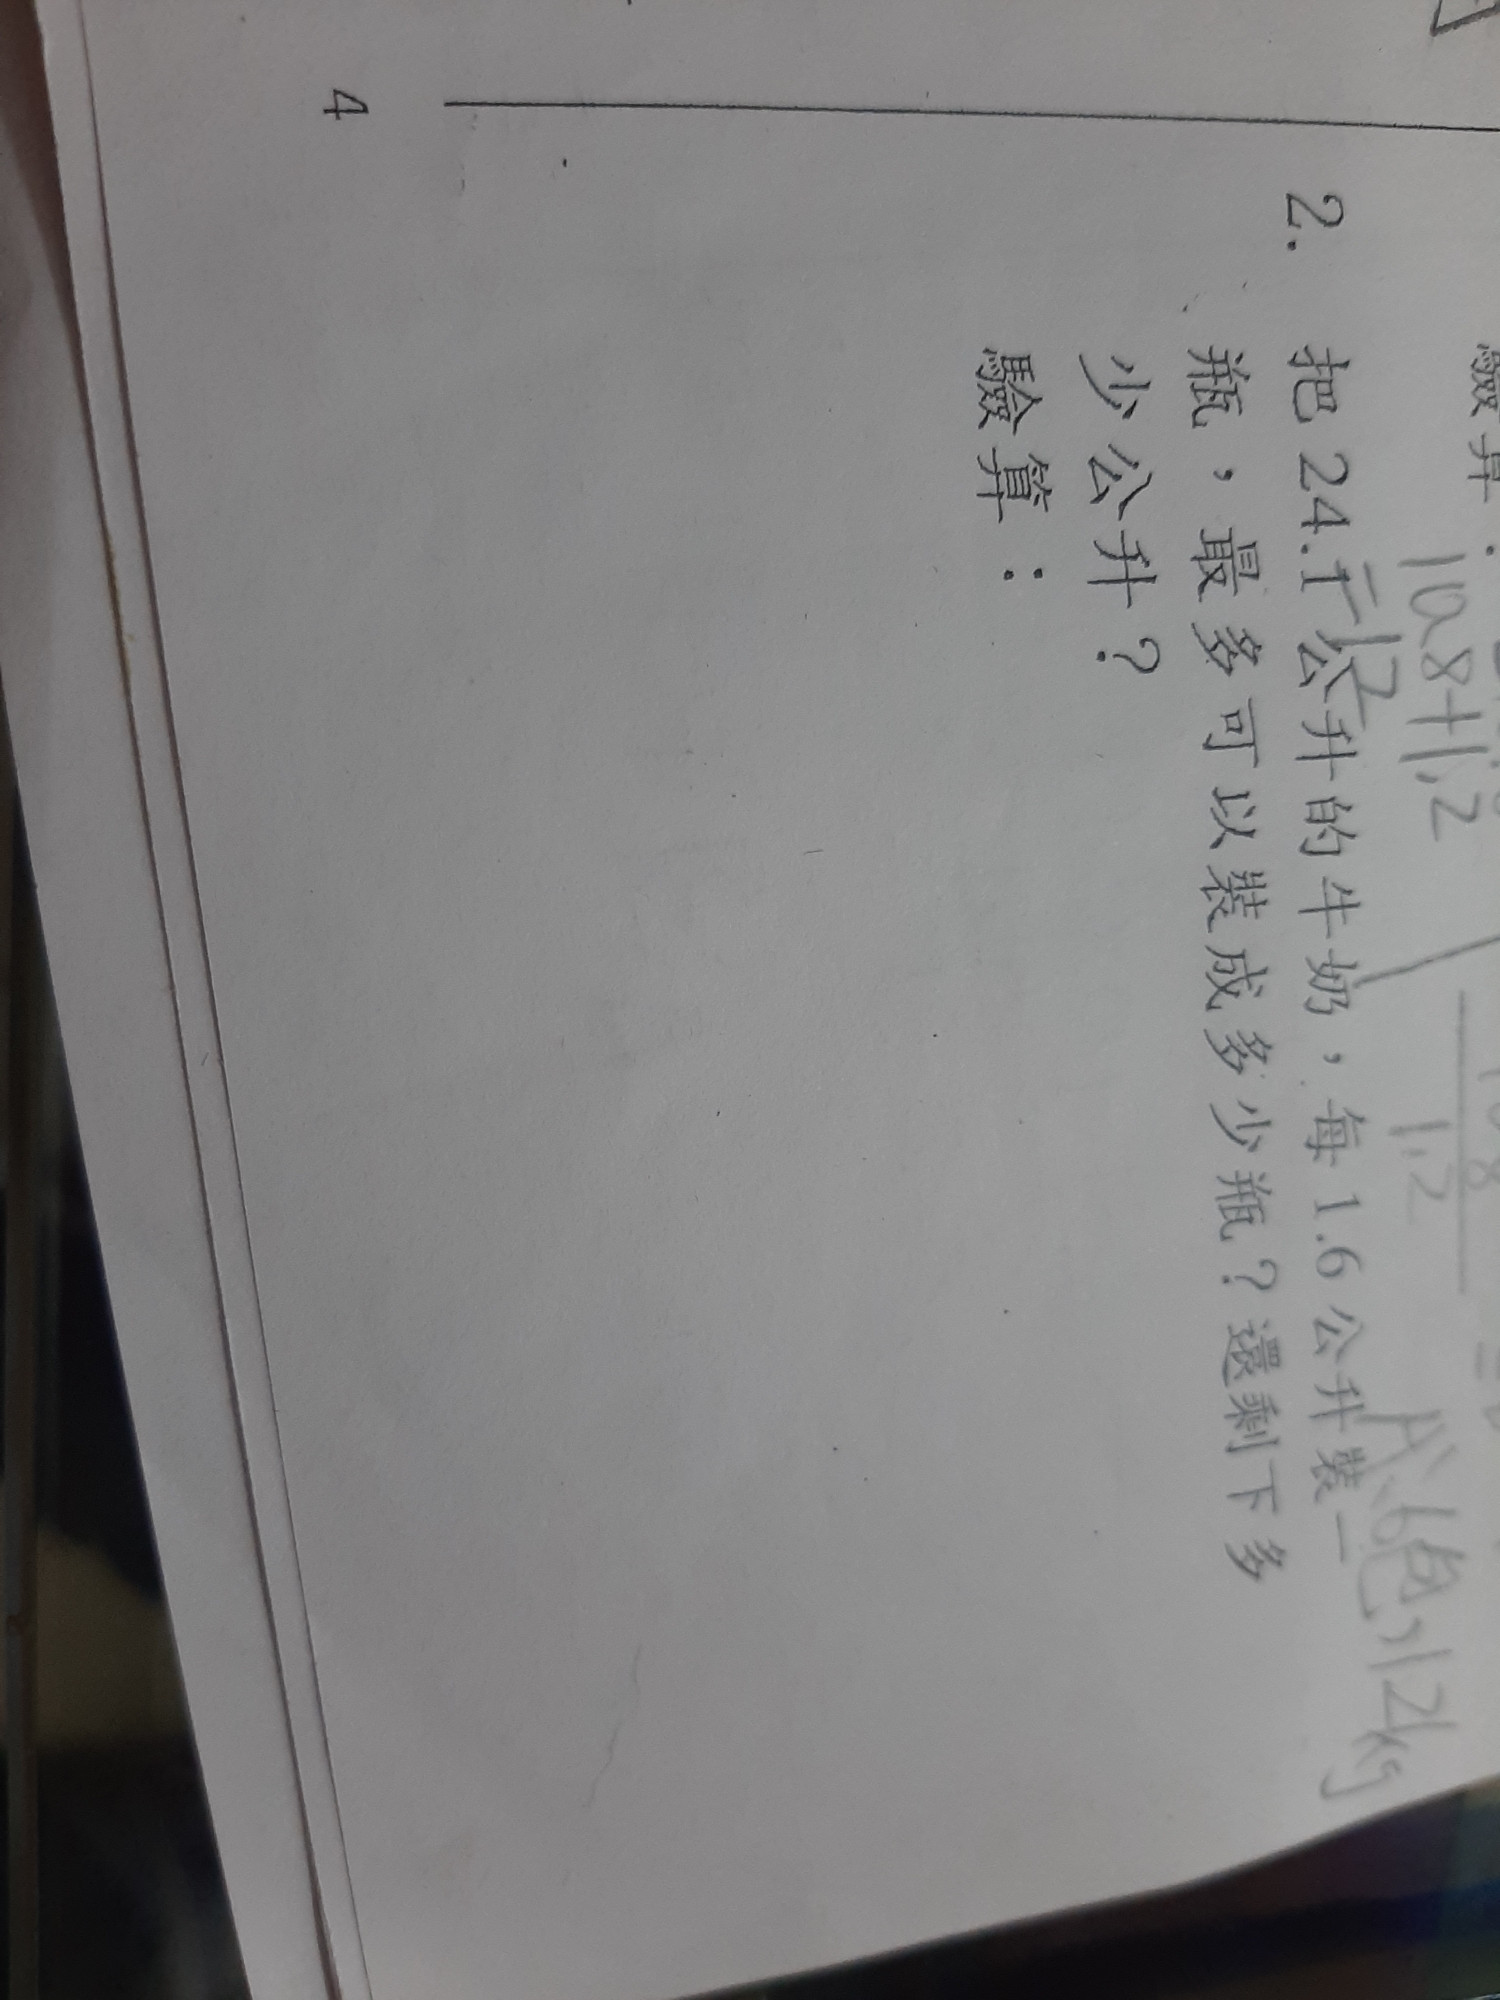 驗算：
108+1.2
1.2
2. 把 24.1 公升的牛奶，每 1.6 公升裝一
瓶，最多可以裝成多少瓶？還剩下多
少公升？
驗算：
4